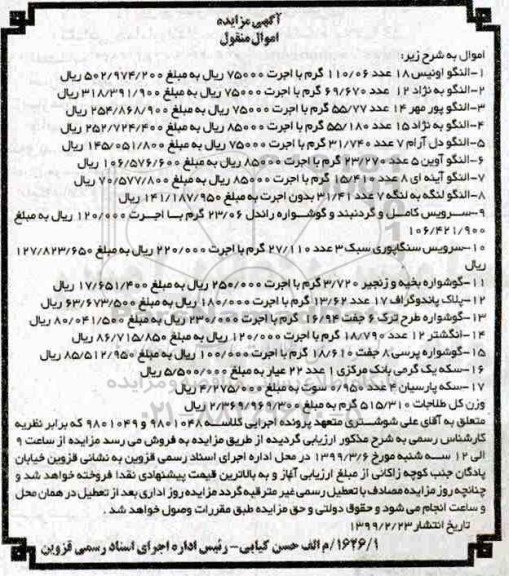 آگهی مزایده
اموال منقول
اموال به شرح زیر:
۱-النگو اونیس ۱۸ عدد ۱۱۰/۰۶ گرم با اجرت ۷۵۰۰۰ ریال به مبلغ ۵۰۲/۹۷۴/۲۰۰ ریال
۲-النگو به نژاد ۱۲ عدد ۶۹/۶۷۰ گرم با اجرت ۷۵۰۰۰ ریال به مبلغ ۳۱۸/۳۹۱/۹۰۰ ریال
۳-النگو پور مهر ۱۴ عدد ۵۵/۷۷ گرم با اجرت ۷۵۰۰۰ ریال به مبلغ ۲۵۴/۸۶۸/۹۰۰ ریال
۴-النگو به نژاد ۱۵ عدد ۵۵/۱۸۰ گرم با اجرت ۸۵۰۰۰ ریال به مبلغ ۲۵۲/۷۲۴/۴۰۰ ریال
۵-النگو دل آرام ۷ عدد ۳۱/۷۴۰ گرم با اجرت ۷۵۰۰۰ ریال به مبلغ ۱۴۵/۰۵۱/۸۰۰ ریال
۶-النگو آوین ۵ عدد ۲۳/۲۷۰ گرم با اجرت ۸۵۰۰۰ ریال به مبلغ ۱۰۶/۵۷۶/۶۰۰ ریال
۷-النگو آینه ای ۸ عدد ۱۵/۴۱۰ گرم با اجرت ۸۵۰۰۰ ریال به مبلغ ۷۰/۵۷۷/۸۰۰ ریال
۸-النگو لنگه به لنگه ۷ عدد ۳۱/۴۱ بدون اجرت به مبلغ ۱۴۱/۱۸۷/۹۵۰ ریال
۹-سرویس کامل و گردنبند و گوشواره راندل ۲۳/۰۶ گرم با اجرت ۱۲۰/۰۰۰ ریال به مبلغ
۱۰۶/۴۲۱/۹۰۰
۱۰-سرویس سنگاپوری سبک ۳ عدد ۲۷/۱۱۰ گرم با اجرت ۲۲۰/۰۰۰ ریال به مبلغ ۱۲۷/۸۲۳/۶۵۰
ریال
۱۱-گوشواره بخیه و زنجیر ۳/۷۲۰ گرم با اجرت ۲۵۰/۰۰۰ ریال به مبلغ ۱۷/۶۵۱/۴۰۰ ریال
۱۲-پلاک پاندوگراف ۱۷ عدد ۱۳/۶۲ گرم با اجرت ۱۸۰/۰۰۰ ریال به مبلغ ۶۳/۶۷۳/۵۰۰ ریال
۱۳-گوشواره طرح ترک ۶ جفت ۱۶/۹۴ گرم با اجرت ۲۳۰/۰۰۰ ریال به مبلغ ۸۰/۰۴۱/۵۰۰ ریال
۱۴-انگشتر ۱۲ عدد ۱۸/۷۹۰ گرم با اجرت ۱۲۰/۰۰۰ ریال به مبلغ ۸۶/۷۱۵/۸۵۰ ریال
۱۵-گوشواره پرسی ۸ جفت ۱۸/۶۱۰ گرم با اجرت ۱۰۰/۰۰۰ ریال به مبلغ ۸۵/۵۱۲/۹۵۰ ریال
۱۶-سکه یک گرمی بانک مرکزی ۱ عدد ۲۲ عیار به مبلغ ۵/۵۰۰/۰۰۰ ریال
۱۷-سکه پارسیان ۴ عدد ۰/۹۵۰ سوت به مبلغ ۴/۲۷۵/۰۰۰ ریال
وزن کل طلاجات ۵۱۵/۳۱۰ گرم به مبلغ ۲/۳۶۹/۹۶۹/۳۰۰ ریال
متعلق به آقای علی شوشتری متعهد پرونده اجرایی کلاسه ۹۸۰۱۰۴۸ و ۹۸۰۱۰۴۹ که برابر نظریه
کارشناس رسمی به شرح مذکور ارزیابی گردیده از طریق مزایده به فروش می رسد مزایده از ساعت ۹
الی ۱۲ سه شنبه مورخ ۱۳۹۹/۳/۶ در محل اداره اجرای اسناد رسمی قزوین به نشانی قزوین خیابان
پادگان جنب کوچه زاکانی از مبلغ ارزیابی آغاز و به بالاترین قیمت پیشنهادی نقدا فروخته خواهد شد و
چنانچه روز مزایده مصادف با تعطیل رسمی غیر مترقبه گردد مزایده روز اداری بعد از تعطیل در همان محل
و ساعت انجام می شود و حقوق دولتی و حق مزایده طبق مقررات وصول خواهد شد .
تاریخ انتشار ۱۳۹۹/۲/۲۳
۱۶۲۶/۱/م الف حسن کیایی- رئیس اداره اجرای اسناد رسمی قزوین